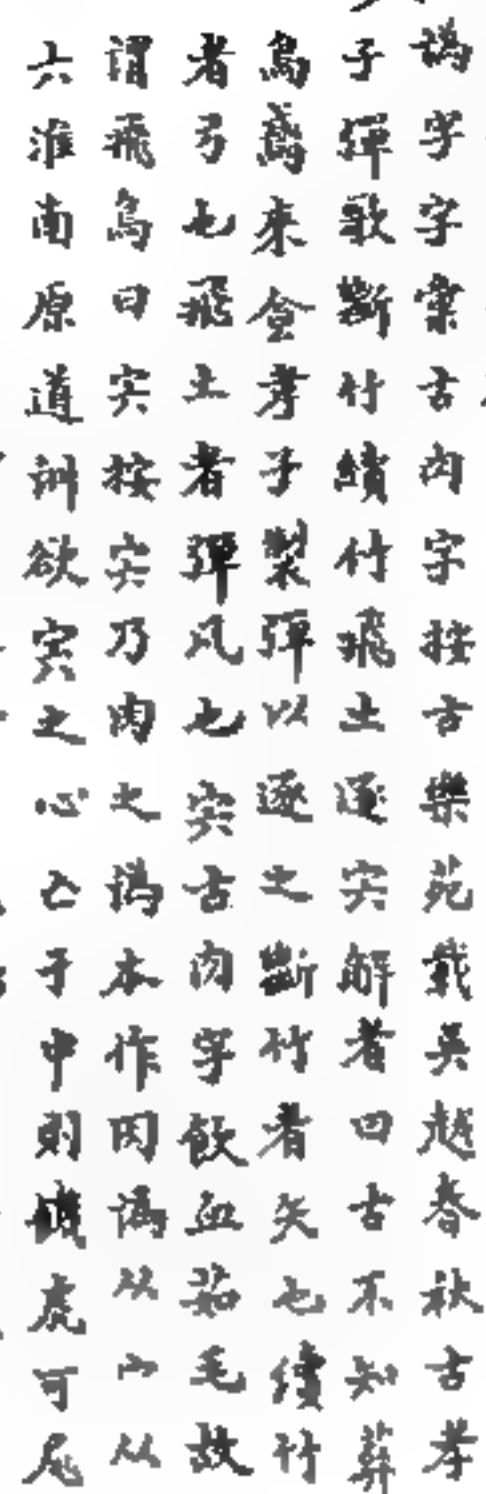 譌字字彙古肉字按古樂苑載吳越春秋古孝
子彈歌斷竹續竹飛土逐宍解者曰古不知葬
鳥鳶來食孝子製彈以逐之斷竹者矢也續竹
者弓也飛土者彈丸也宍古肉字飲血茹毛故
謂飛鳥曰宍按宍乃肉之譌本作肉譌从宀从
六淮南原道訓欲宍之心亡于中則饑虎可尾